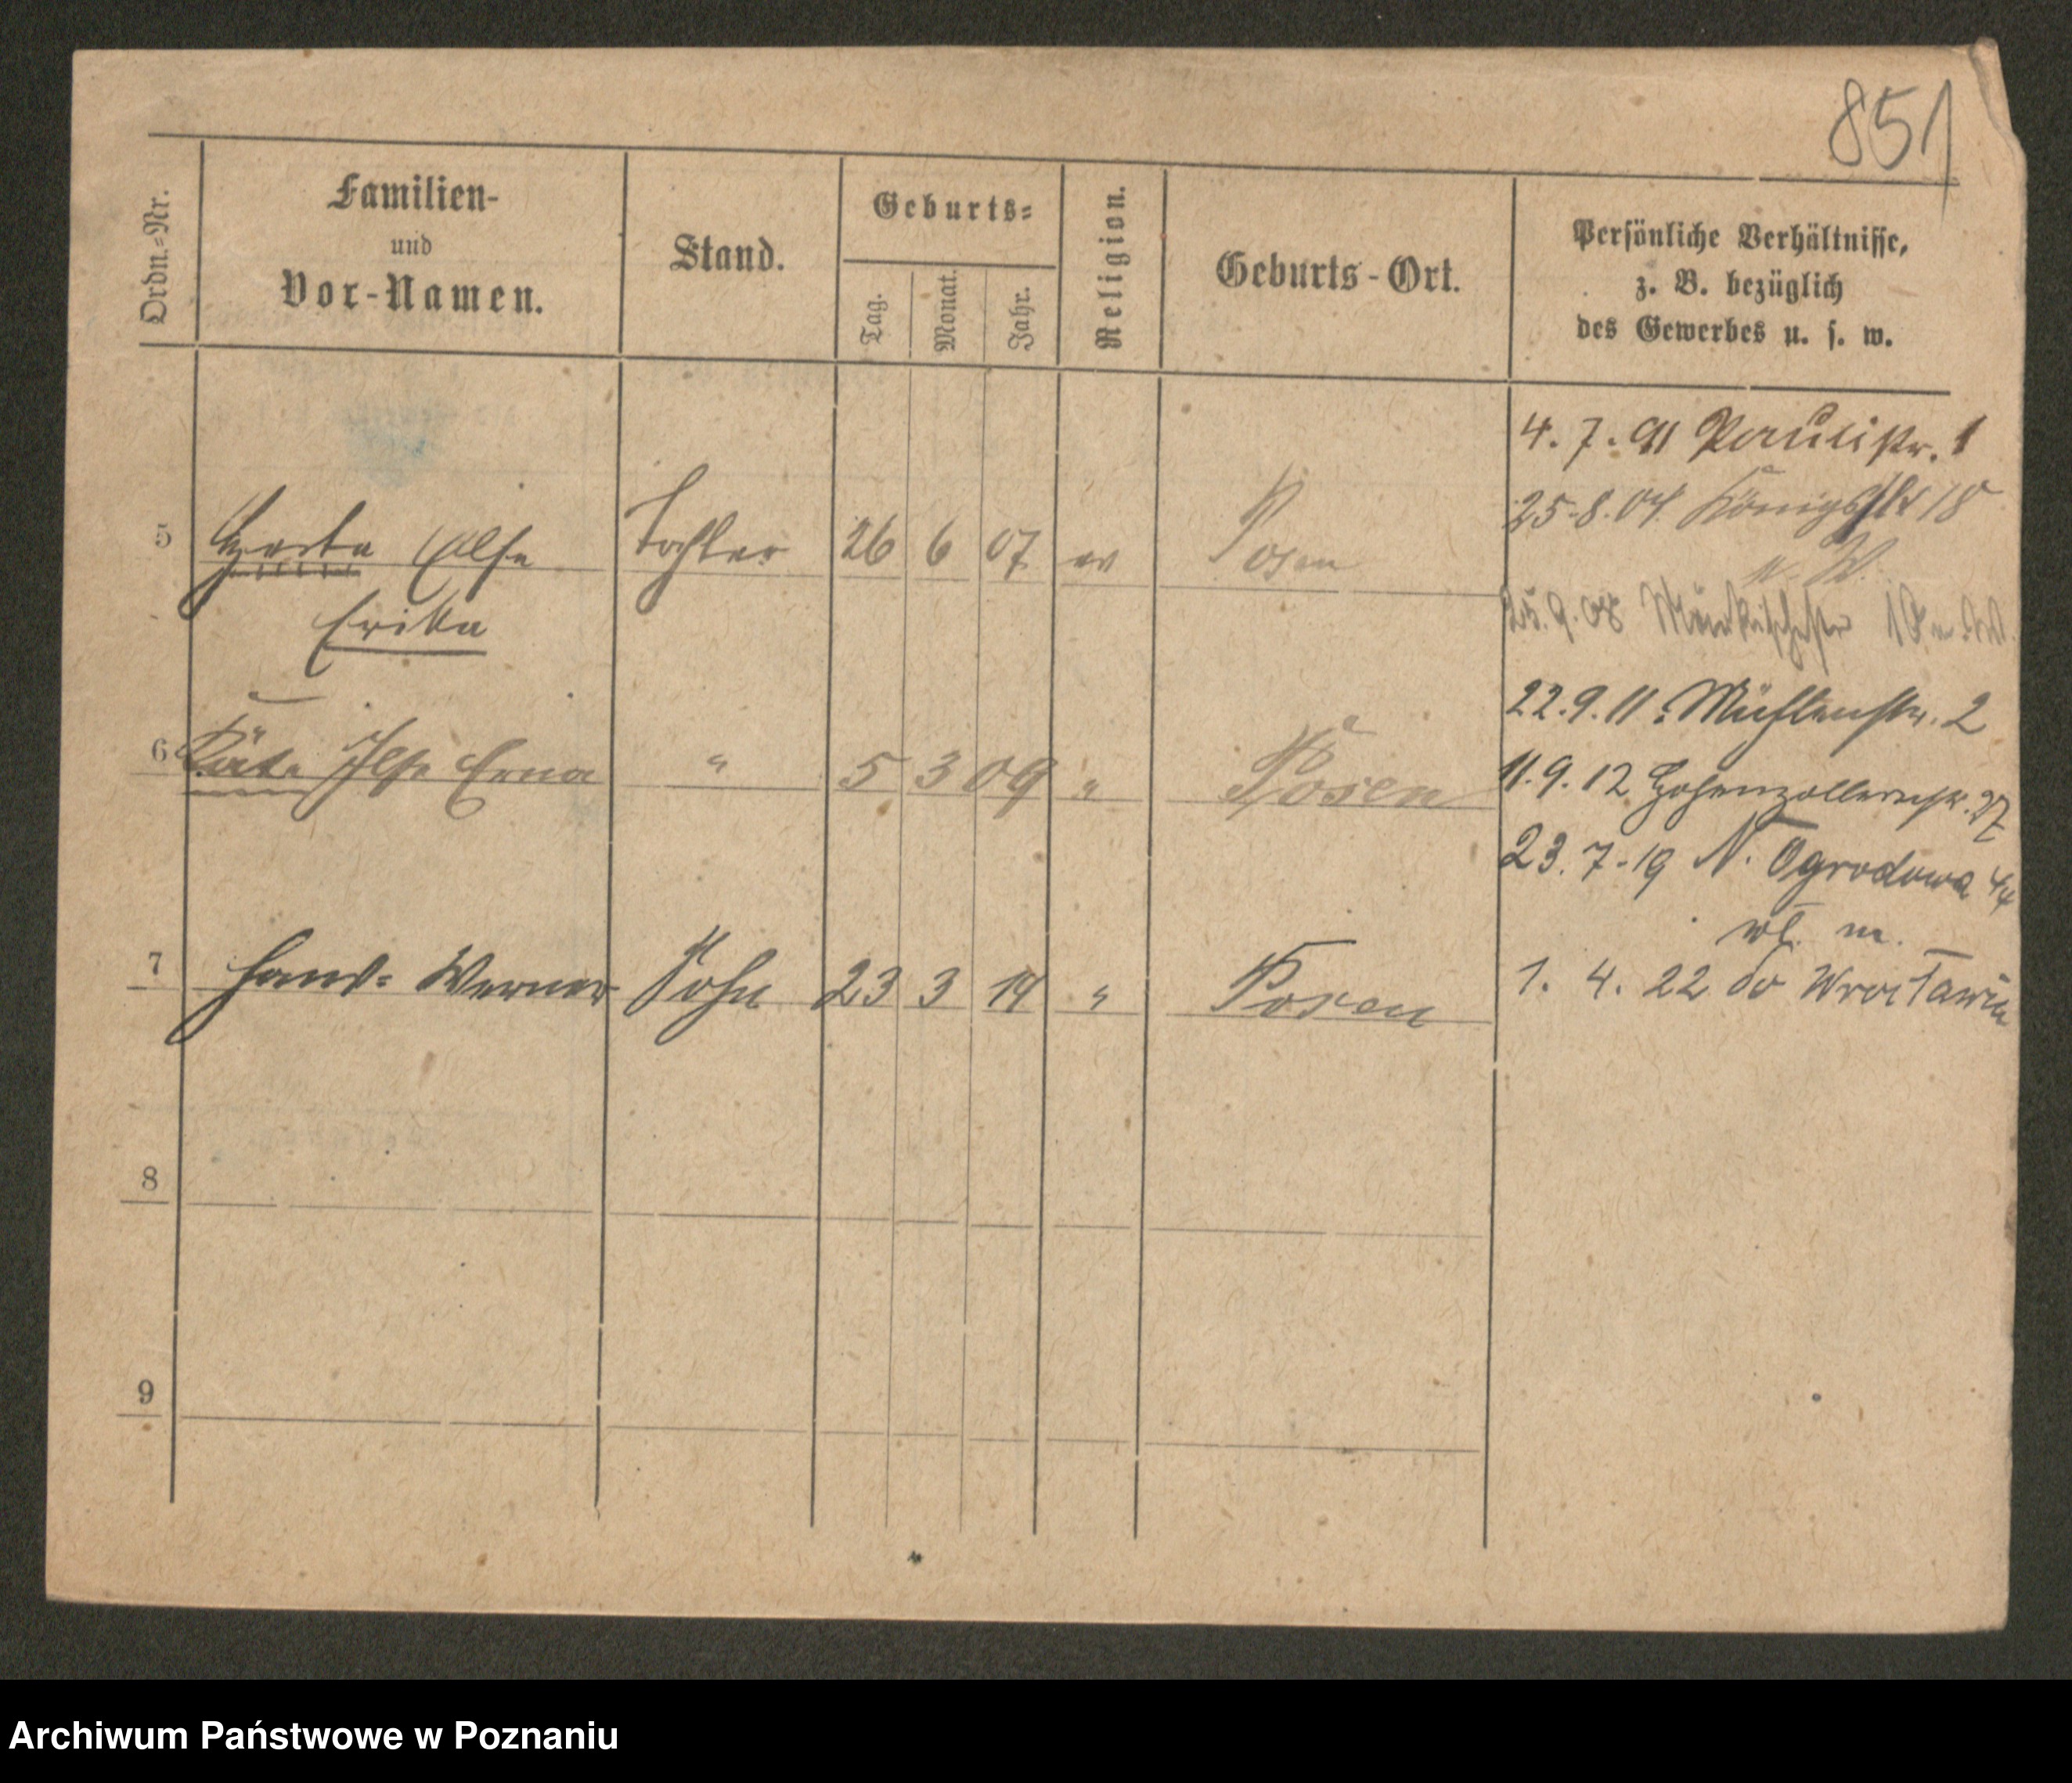 851
Ordn.-Nr.
Familien-
und
Vor-Namen.
Stand.
Geburts-
Tag.
Monat.
Jahr.
Religion.
Geburts-Ort.
Persönliche Verhältnisse,
z. B. bezüglich
des Gewerbes u. s. w.
4. 7. 91 Paulistr. 1
25.8.04 Königstr 18
n. W.
5 Herta Else Tochter 26 6 07 ev Posen
Erika
25.9.08 Märkischestr 10 n. W.
22.9.11. Mühlenstr. 2
6 Käte Ilse Erna " 5 3 09 " Posen
11.9.12 Hohenzollernstr. 37
23.7-19 N. Ogrodowa 44
wł. m.
7 Hans-Werner Sohn 23 3 14 " Posen
1. 4. 22 do Wrocławia
8
9
Archiwum Państwowe w Poznaniu